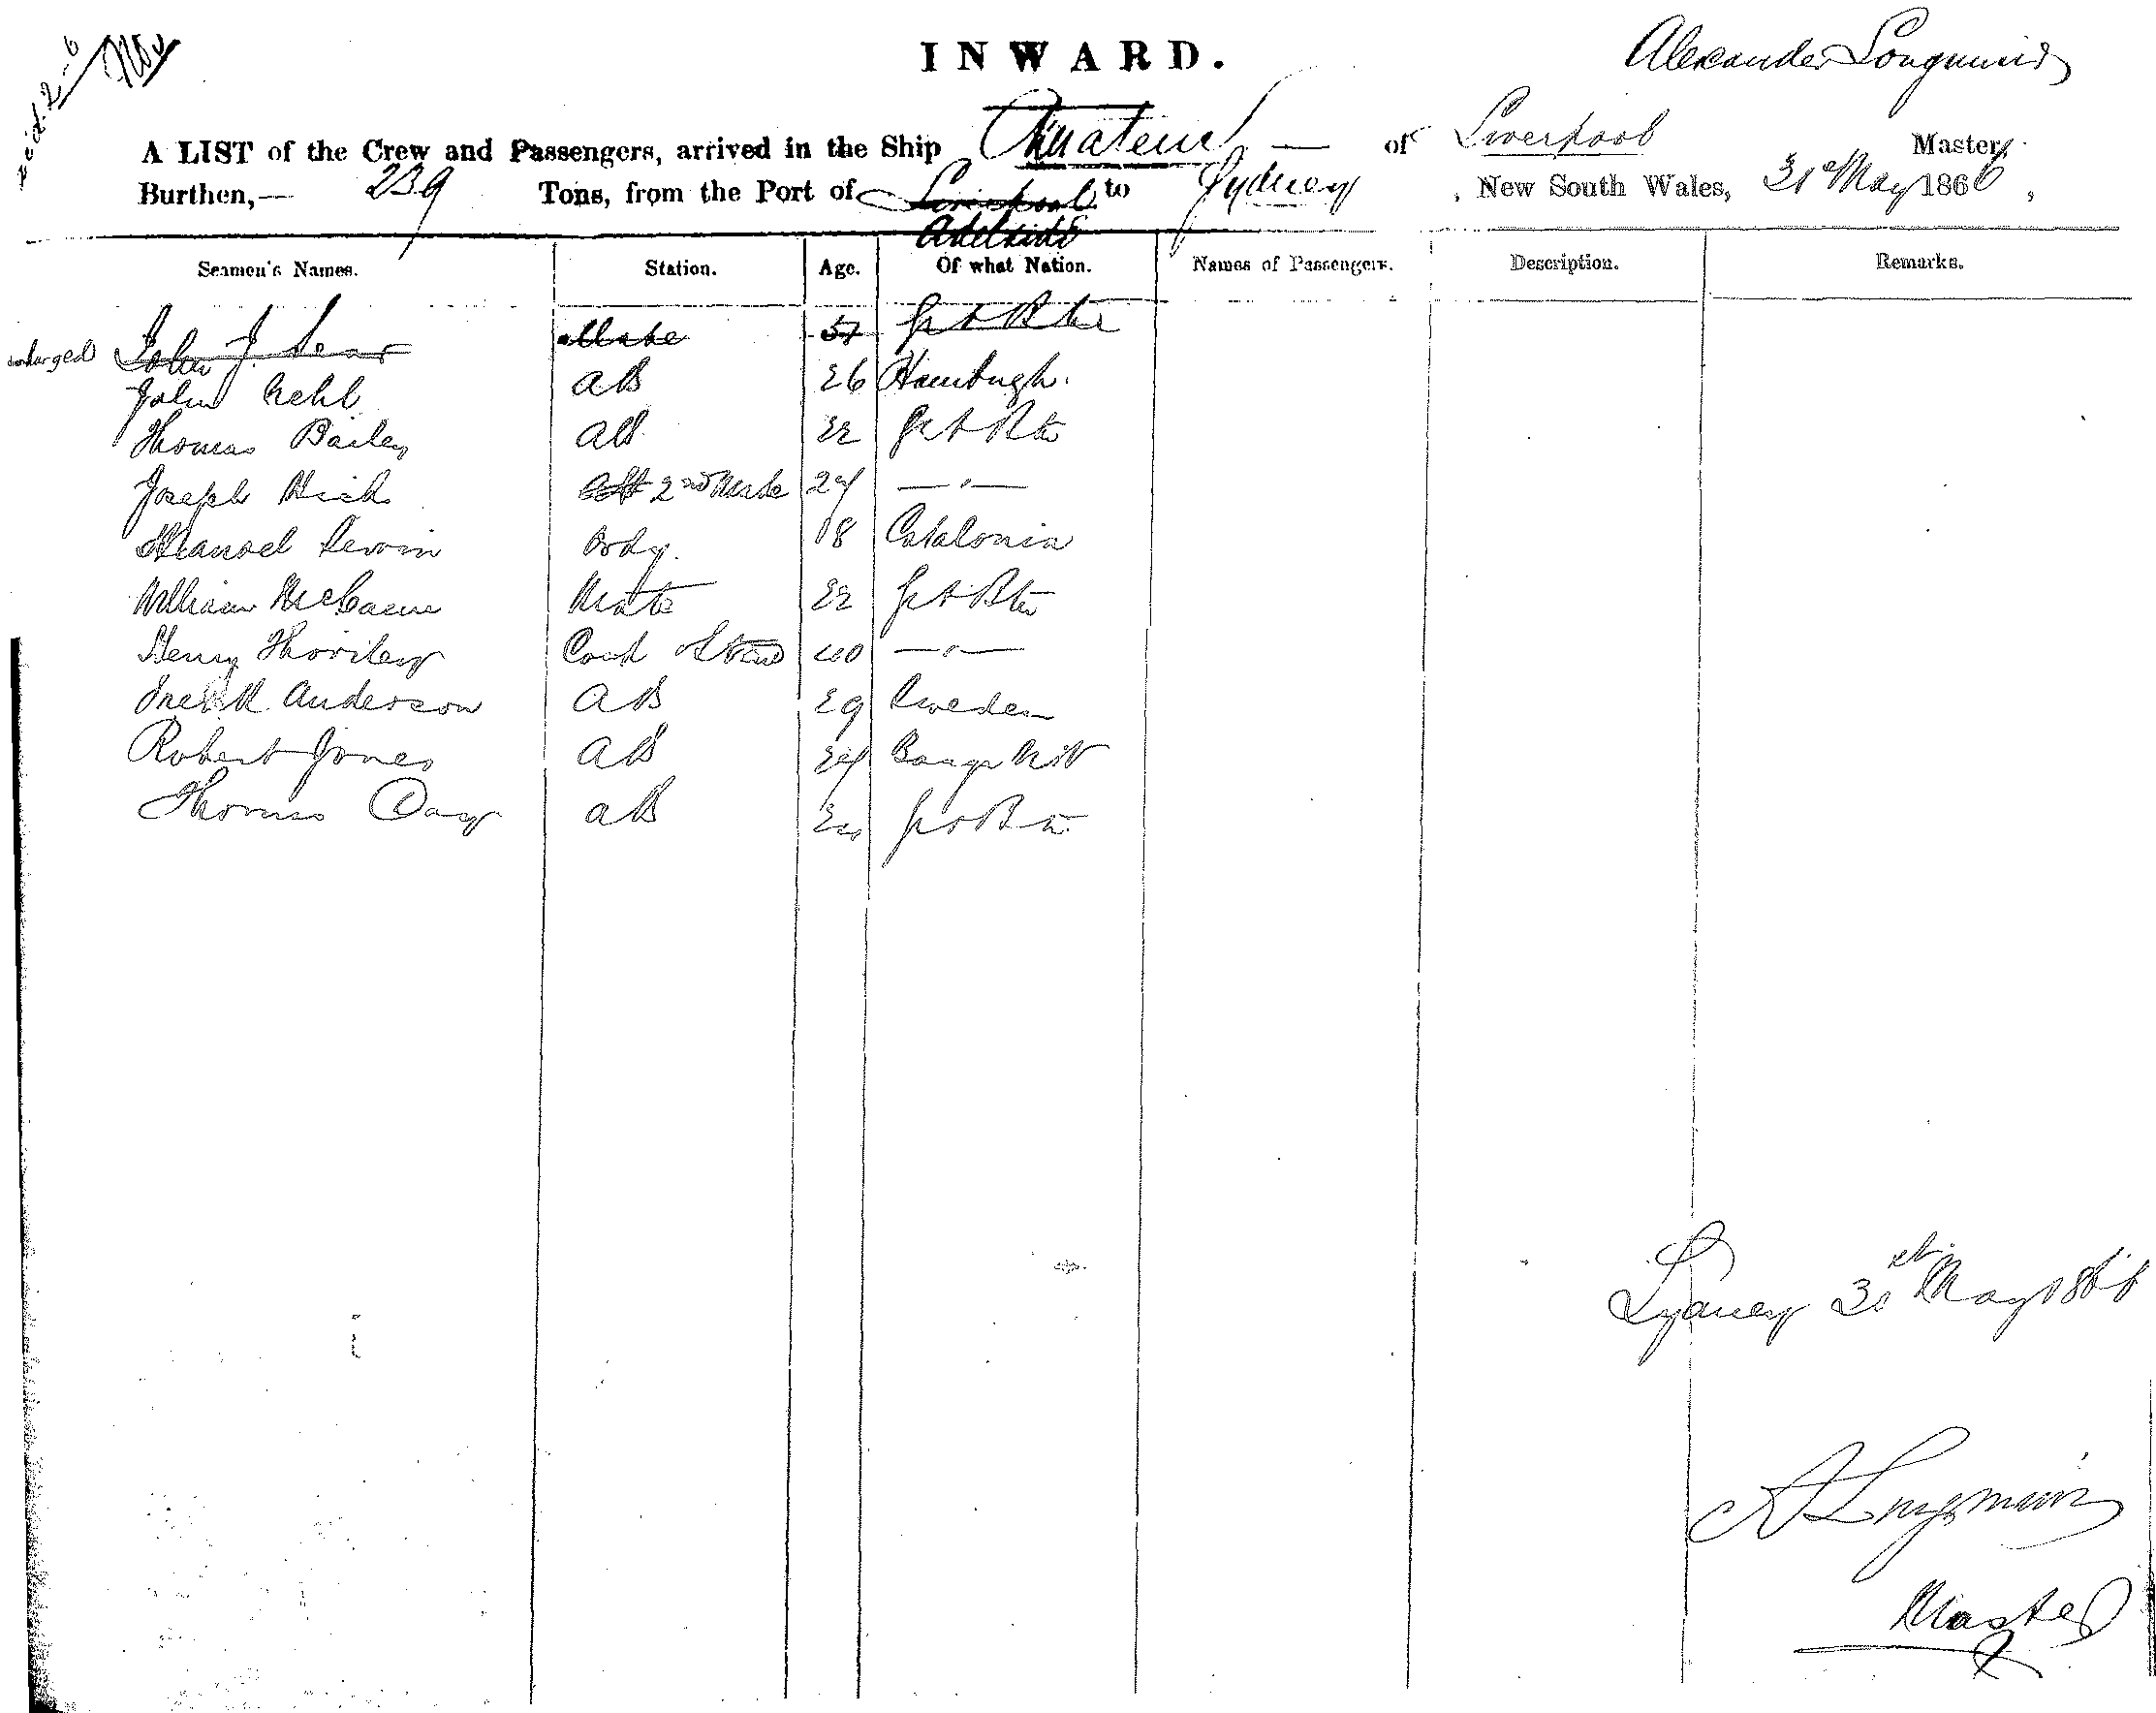 INWARD.
Alexander Longmuir
A LIST of the Crew and Passengers, arrived in the Ship Amateur — of Liverpool Master,
Burthen,— 239 Tons, from the Port of Liverpool to Sydney , New South Wales, 31st May 1866 ,
Adelaide
Seamen's Names. Station. Age. Of what Nation. Names of Passengers. Description. Remarks.
John J. Mate 37 Gt Btn
John AB 26 Hamburgh.
Thomas Bailey AB 22 Gt Btn
Joseph 2nd Mate 24 — " —
18 Catalonia
William McCaun Mate 22 Gt Btn
Henry Cook & Stew 40 — " —
Anderson AB 29 Sweden
Robert Jones AB
Thomas Day AB Gt Btn
Sydney 31st May 1866
A Longmuir
Master